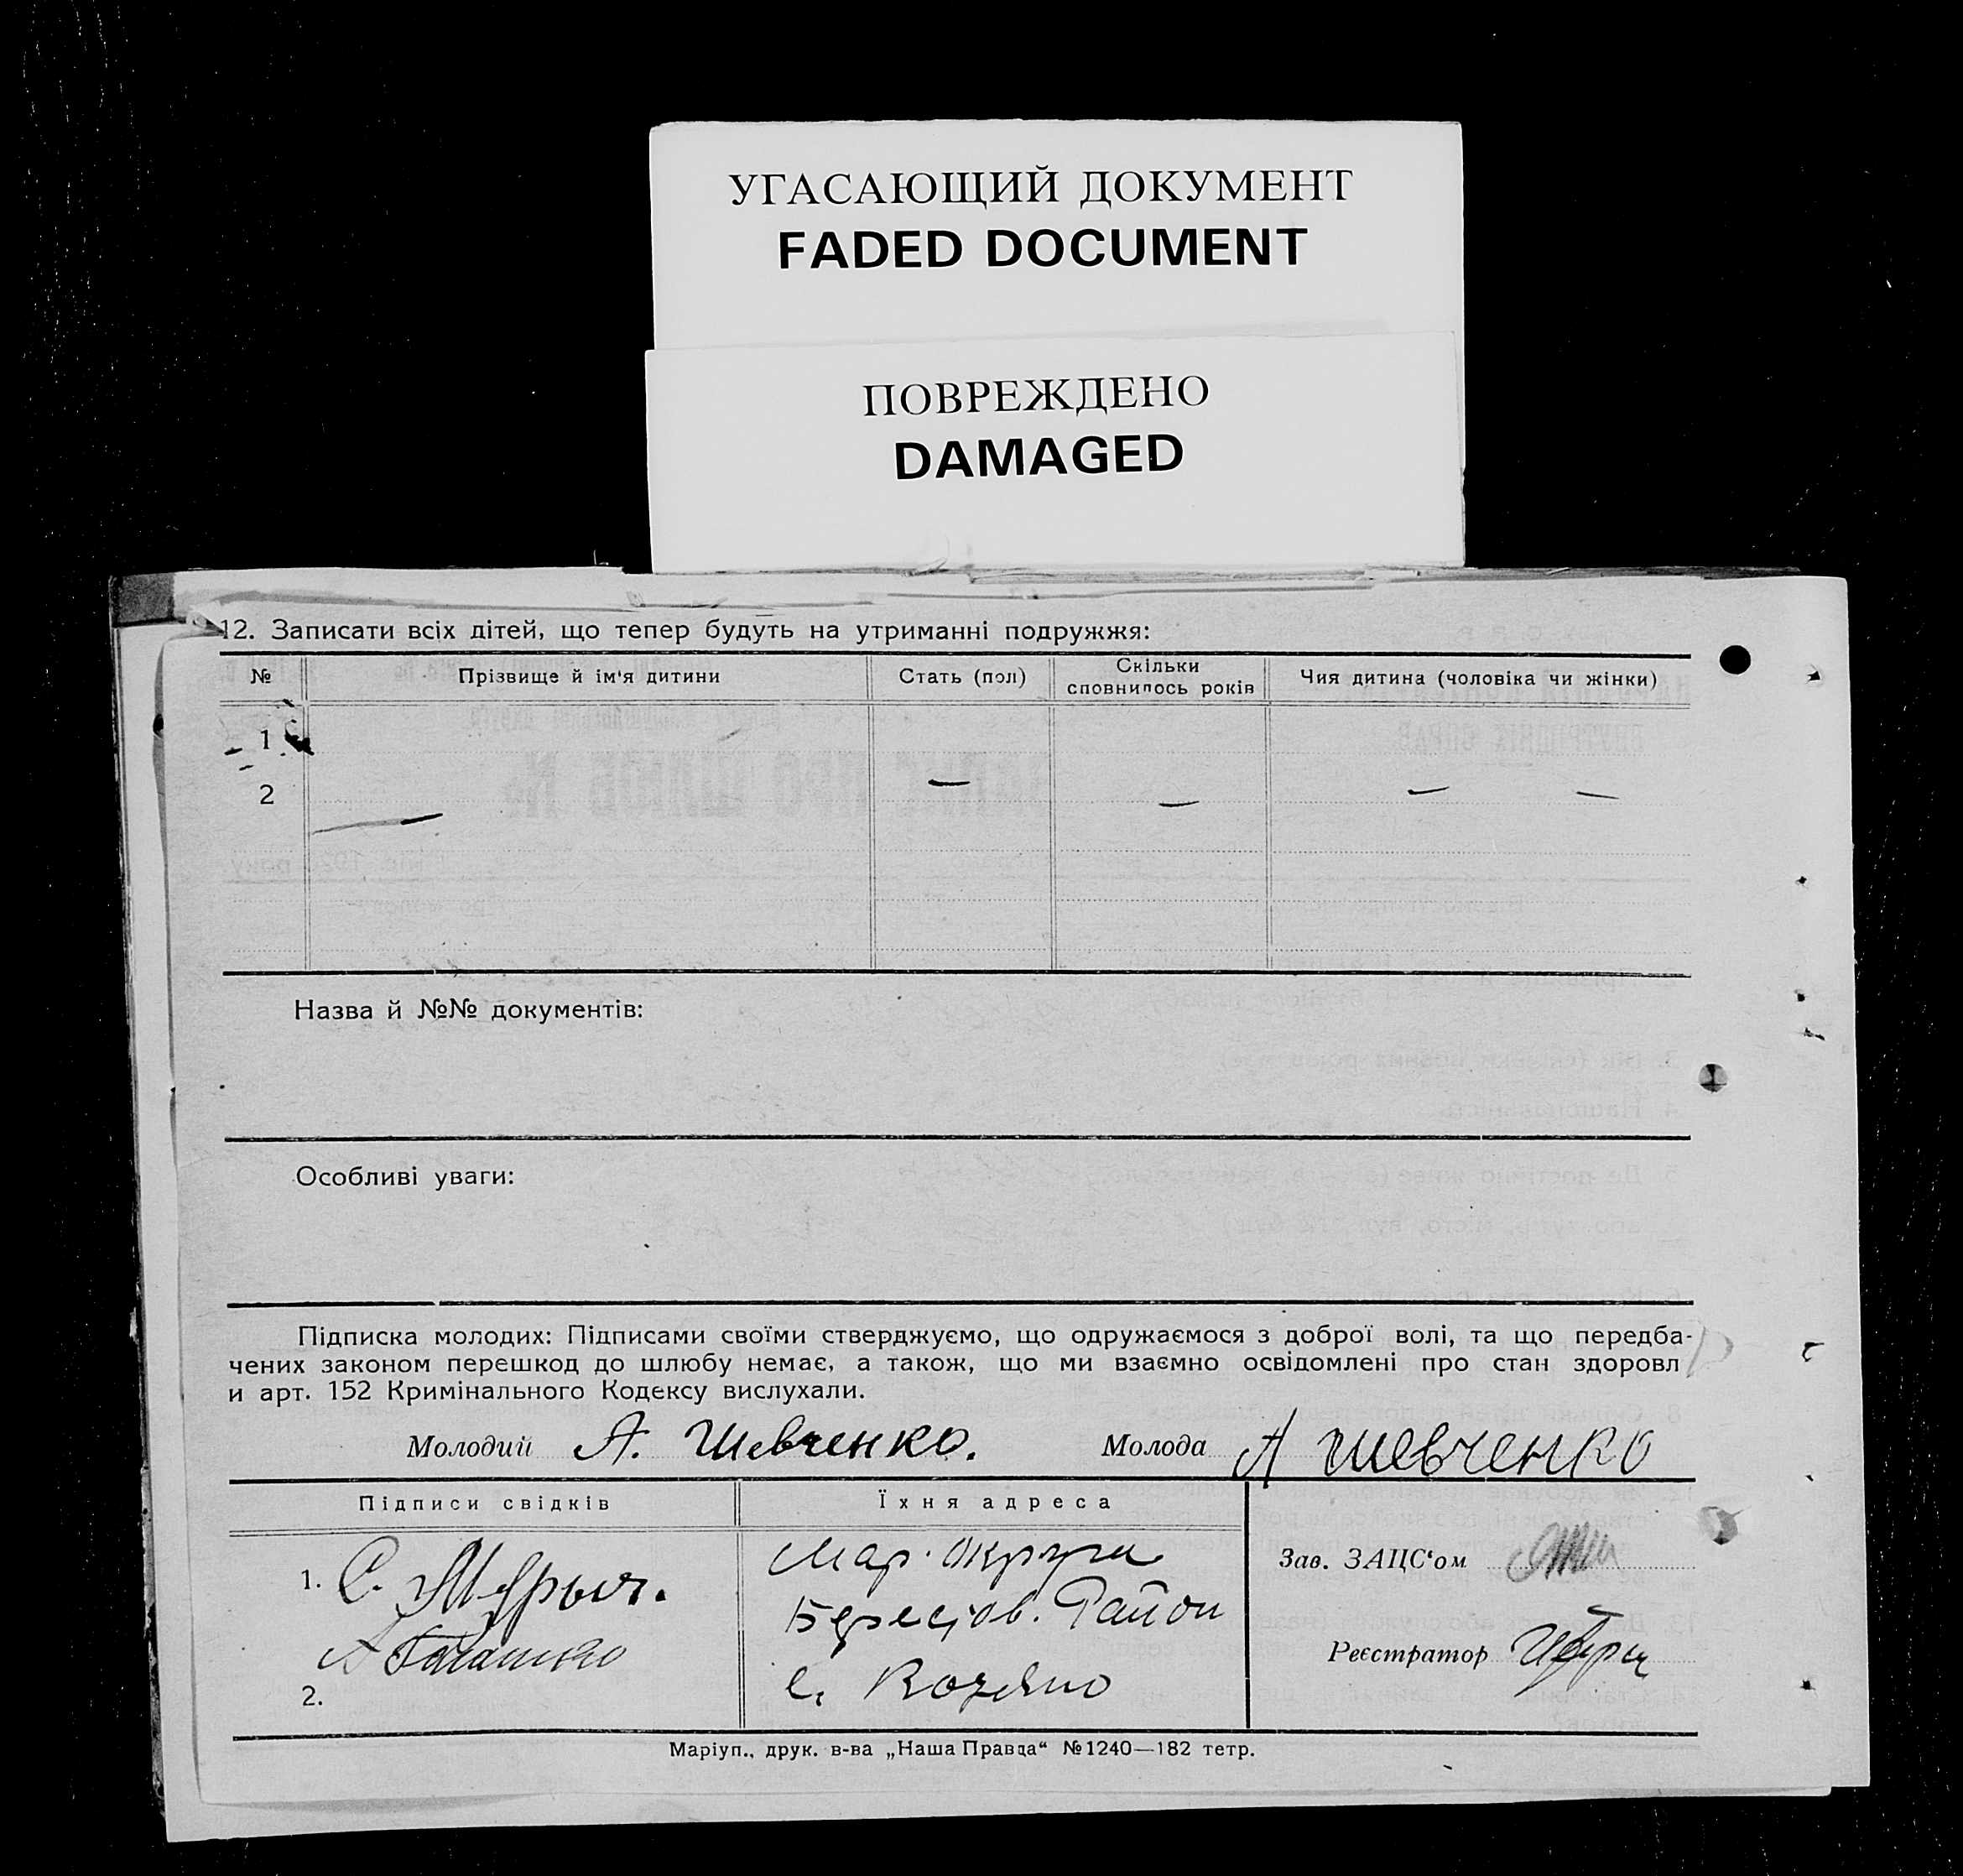 УГАСАЮЩИЙ ДОКУМЕНТ
FADED DOCUMENT
ПОВРЕЖДЕНО
DAMAGED
12. Записати всіх дітей, що тепер будуть на утриманні подружжя:
№ Прізвище й ім'я дитини Стать (пол) Скільки сповнилось років Чия дитина (чоловіка чи жінки)
1
2
Назва й №№ документів:
Особливі уваги:
Підписка молодих: Підписами своїми стверджуємо, що одружаємося з доброї волі, та що передба-
чених законом перешкод до шлюбу немає, а також, що ми взаємно освідомлені про стан здоровл
и арт. 152 Кримінального Кодексу вислухали.
Молодий А. Шевченко. Молода А Шевченко
Підписи свідків Їхня адреса
1. С. Мар. Округи
Зав. ЗАЦС'ом
Район
Реєстратор
2. с.
Маріуп., друк. в-ва „Наша Правда“ №1240—182 тетр.